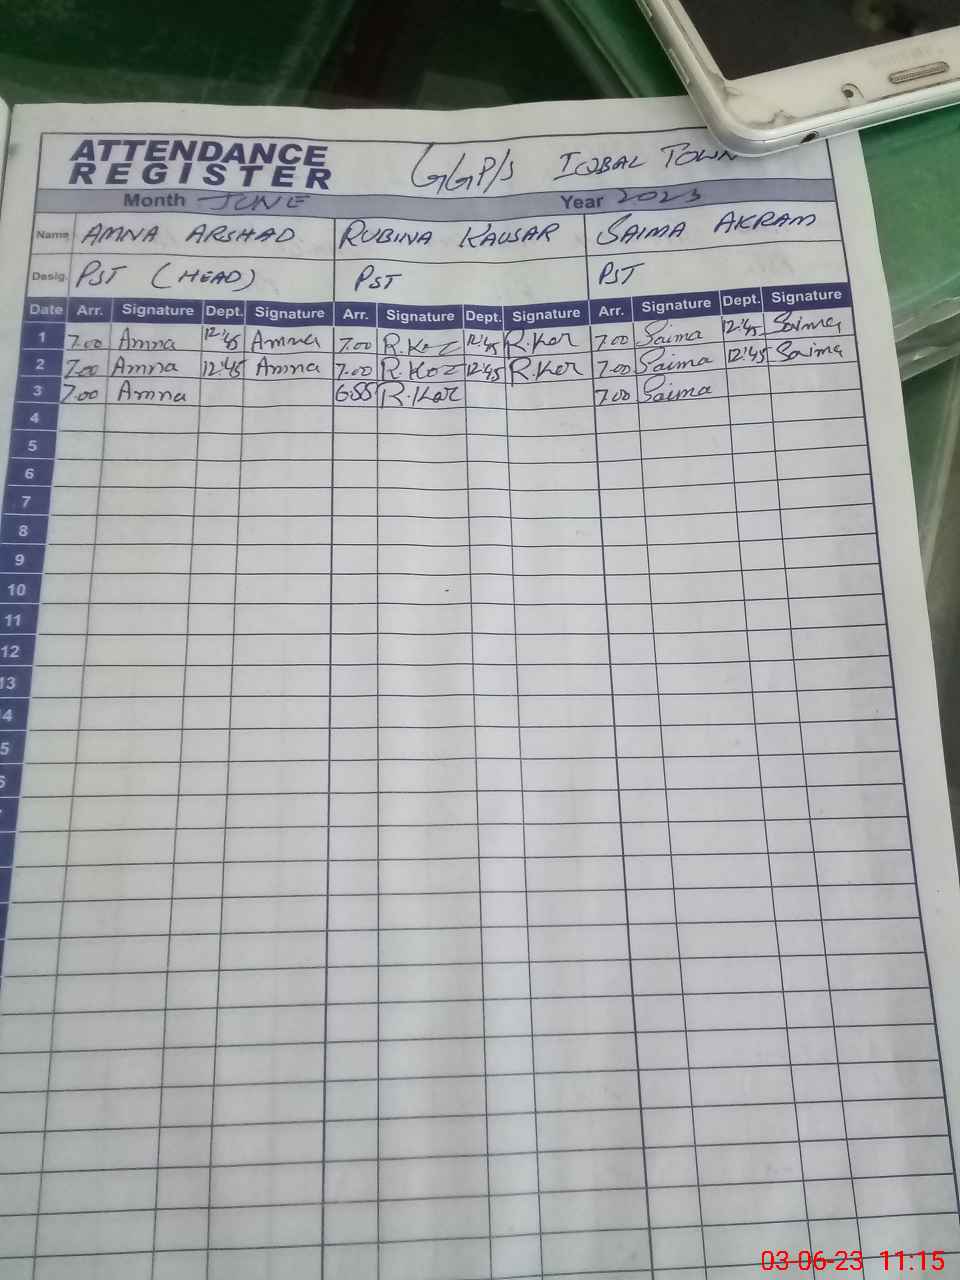 ATTENDANCE
REGISTER
GGP/S IQBAL TOWN
Month JUNE Year 2023
Name AMNA ARSHAD RUBINA KAUSAR SAIMA AKRAM
Desig. PST (HEAD) PST PST
Date Arr. Signature Dept. Signature Arr. Signature Dept. Signature Arr. Signature Dept. Signature
1 7.00 Amna 12:45 Amna 7.00 R.Kor 12:45 R.Kor 7.00 Saima 12:45 Saima
2 7.00 Amna 12:45 Amna 7.00 R.Kor 12:45 R.Kor 7.00 Saima 12:45 Saima
3 7.00 Amna 6:55 R.Kor 7.00 Saima
4
5
6
7
8
9
10
11
12
13
4
5
03-06-23 11:15